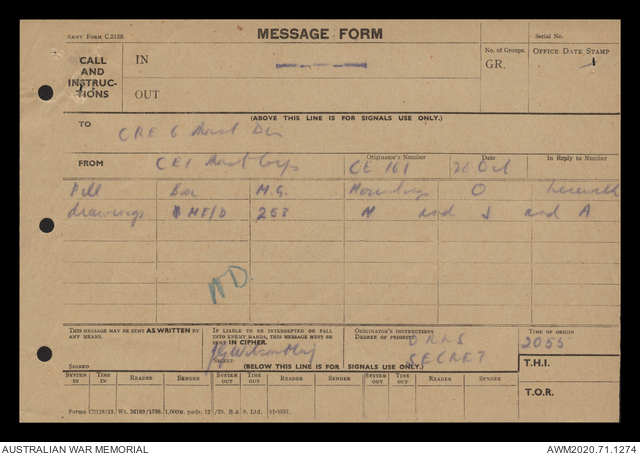 ARMY FORM C.2128.
MESSAGE FORM
Serial No.
CALL AND INSTRUCTIONS
IN
No. of Groups.
GR.
OFFICE DATE STAMP
OUT
(ABOVE THIS LINE IS FOR SIGNALS USE ONLY.)
TO
CRE 6 Aust Div
FROM
CE 1 Aust Corps
Originator's Number
CE 161
Date
26 Oct
In Reply to Number
Pill Box M.G. O herewith
drawings ME/D 253 N and J and A
THIS MESSAGE MAY BE SENT AS WRITTEN BY ANY MEANS.
SIGNED
IF LIABLE TO BE INTERCEPTED OR FALL INTO ENEMY HANDS, THIS MESSAGE MUST BE SENT IN CIPHER.
SIGNED
ORIGINATOR'S INSTRUCTIONS
DEGREE OF PRIORITY
DRLS
SECRET
TIME OF ORIGIN
2055
(BELOW THIS LINE IS FOR SIGNALS USE ONLY.)
T.H.I.
SYSTEM IN TIME IN READER SENDER SYSTEM OUT TIME OUT READER SENDER SYSTEM OUT TIME OUT READER SENDER
T.O.R.
AUSTRALIAN WAR MEMORIAL
AWM2020.71.1274